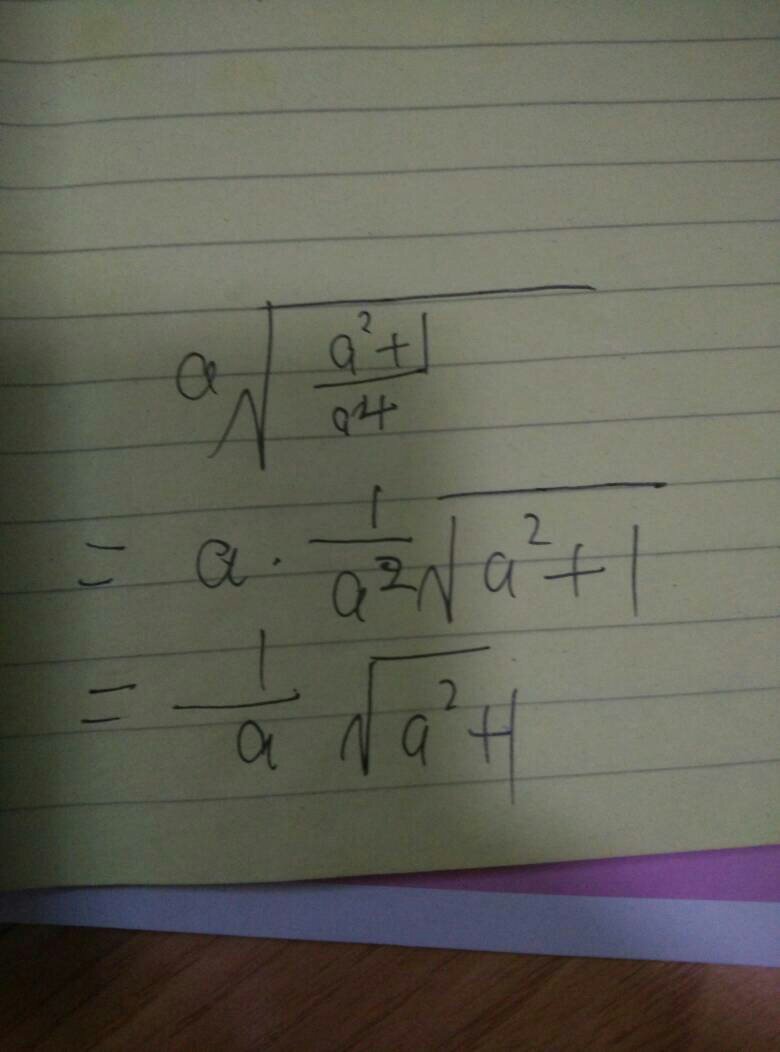 a√((a²+1)/a⁴)
= a·(1/a²)√(a²+1)
= (1/a)√(a²+1)